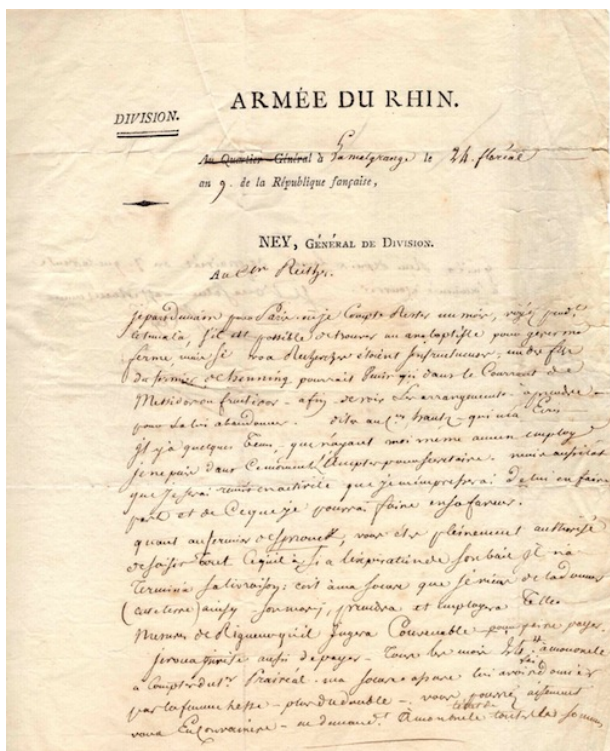 ARMÉE DU RHIN.
DIVISION.
Au Quartier-Général à la malgrange le 24. floréal
an 9. de la République française,
NEY, Général de Division.
Au Cen
je pars demain pour Paris où je Compte Rester un mois, voyez pendt.
s'il est possible de trouver un anabaptiste pour gerer ma
ferme, mais si vos Recherches étoient un des fils
du fermier de henning pourrait venir ici dans le Courrant de
Messidor ou fructidor - afin de voir les arrangements à prendre
pour la lui abandonner. dite au Cen hautz qui m'a Ecris
il y a quelques Tems, que n'ayant moi meme aucun employ
je ne puis dans Ce moment l'accepter pour secretaire. mais aussitot
que je serai en activité que je m'empresserai de lui en faire
part et de Ce que je pourrai faire en sa faveur.
quant au fermier de vous éte pleinement authorisé
de saisir tout Ce qu'il a, si a l'expiration de son bail il n'a
Terminé sa livraison; c'est à ma soeur que je viens de la donner
(cette terre) ainsy son mary prendra et Employera Telle
Mesures de Rigueur qu'il Jugera Convenable pour
je vous aussi de payer - Tous les mois 24
a Compter du 1er Prairéal - ma soeur lui avoir donner
par la femme hesse - plus du double - vous pourré aisement
vous En Convaincre - en demandt. a toute la somme